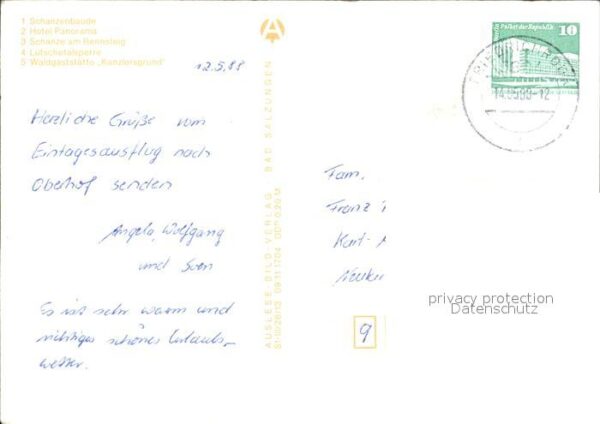 1 Schanzenbaude
2 Hotel Panorama
3 Schanze am Rennsteig
4 Lütschetalsperre
5 Waldgaststätte „Kanzlersgrund"
12.5.88
Herzliche Grüße vom
Eintagesausflug nach
Oberhof senden
Angela, Wolfgang
und Sven
Es ist sehr warm und
richtiges schönes Urlaubs-
wetter.
AUSLESE-BILD-VERLAG BAD SALZUNGEN
Palast der Republik
10
DDR
Fam.
Franz
Karl-
9
privacy protection
Datenschutz